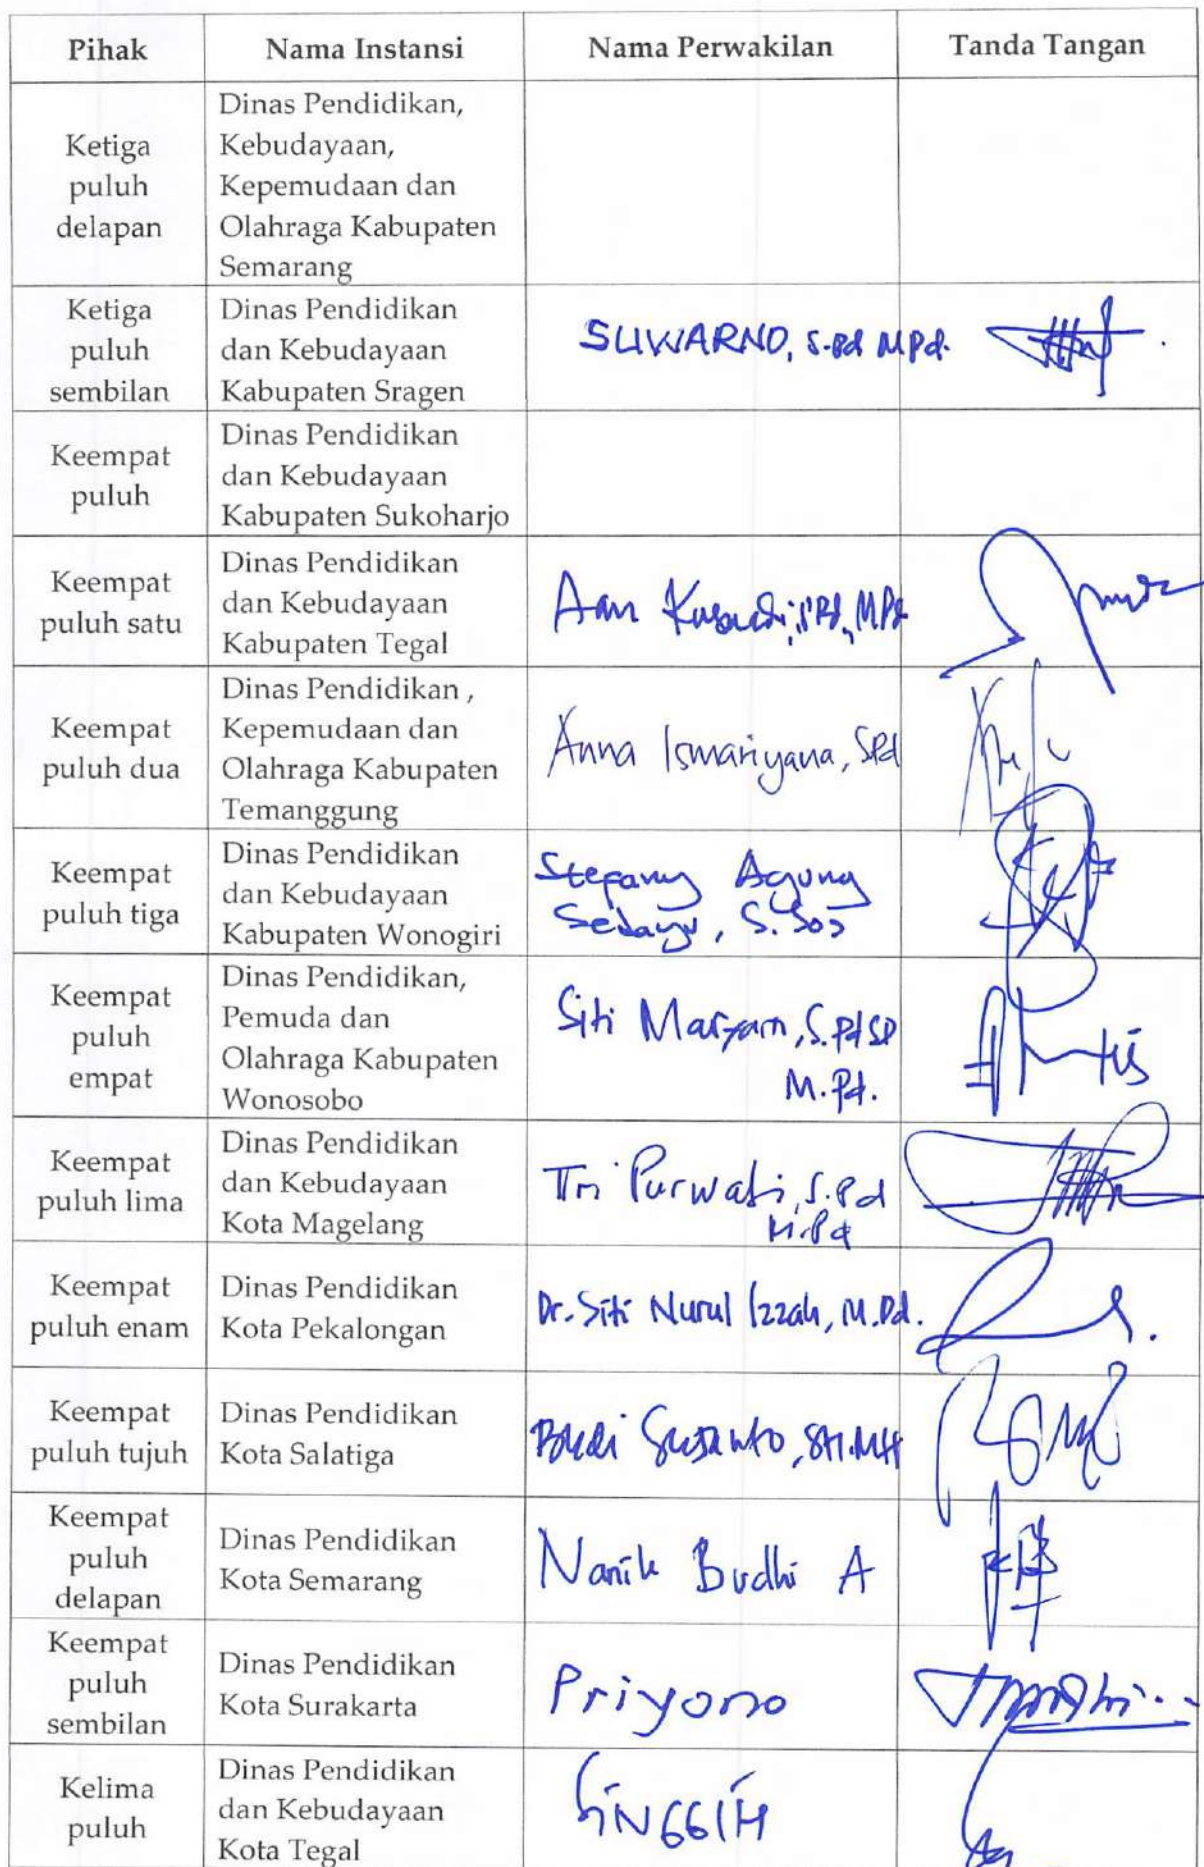 Pihak Nama Instansi Nama Perwakilan Tanda Tangan
Ketiga
puluh
delapan
Dinas Pendidikan,
Kebudayaan,
Kepemudaan dan
Olahraga Kabupaten
Semarang
Ketiga
puluh
sembilan
Dinas Pendidikan
dan Kebudayaan
Kabupaten Sragen
SUWARNO, S.Pd M.Pd.
Keempat
puluh
Dinas Pendidikan
dan Kebudayaan
Kabupaten Sukoharjo
Keempat
puluh satu
Dinas Pendidikan
dan Kebudayaan
Kabupaten Tegal
Aan S.Pd., M.Pd
Keempat
puluh dua
Dinas Pendidikan ,
Kepemudaan dan
Olahraga Kabupaten
Temanggung
Anna Ismariyana, SPd
Keempat
puluh tiga
Dinas Pendidikan
dan Kebudayaan
Kabupaten Wonogiri
Stepany Agung
Sedayu, S.Sos
Keempat
puluh
empat
Dinas Pendidikan,
Pemuda dan
Olahraga Kabupaten
Wonosobo
Siti Maryam, S.Pd SD
M.Pd.
Keempat
puluh lima
Dinas Pendidikan
dan Kebudayaan
Kota Magelang
Tri Purwati, S.Pd
M.Pd
Keempat
puluh enam
Dinas Pendidikan
Kota Pekalongan
Dr. Siti Nurul Izzah, M.Pd.
Keempat
puluh tujuh
Dinas Pendidikan
Kota Salatiga
Budi Susanto, SH.MH
Keempat
puluh
delapan
Dinas Pendidikan
Kota Semarang
Nanik Budhi A
Keempat
puluh
sembilan
Dinas Pendidikan
Kota Surakarta
Priyono
Kelima
puluh
Dinas Pendidikan
dan Kebudayaan
Kota Tegal
SINGGIH